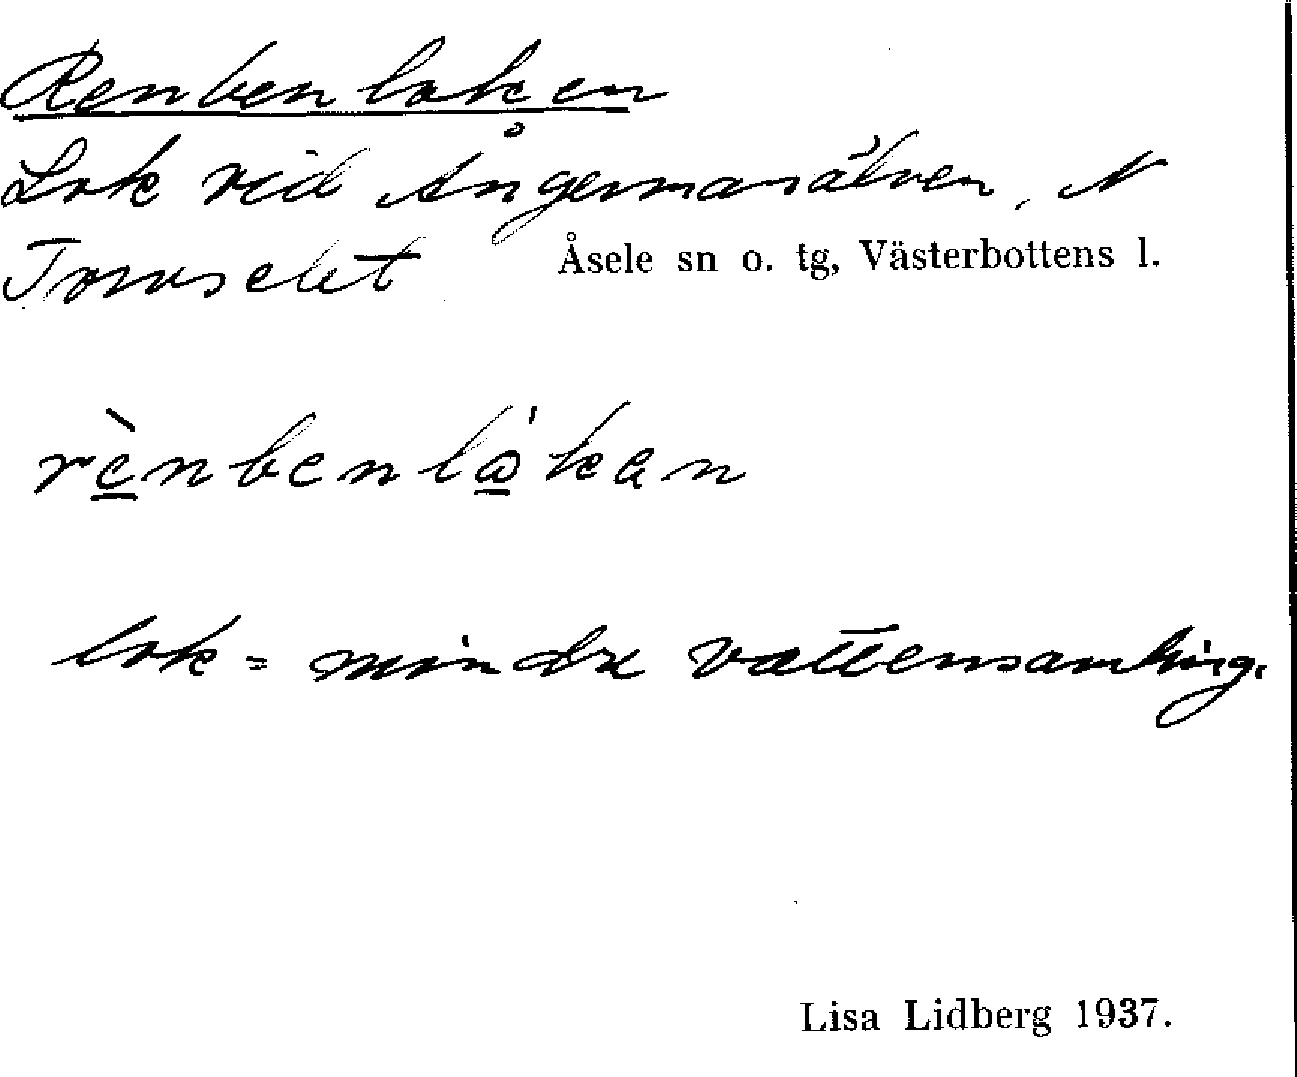 Renbenloken
Lok vid Ångermanälven, N
Torvselet Åsele sn o. tg, Västerbottens l.
rè̱nbenlώ̱kan
lok = mindre vattensamling.
Lisa Lidberg 1937.